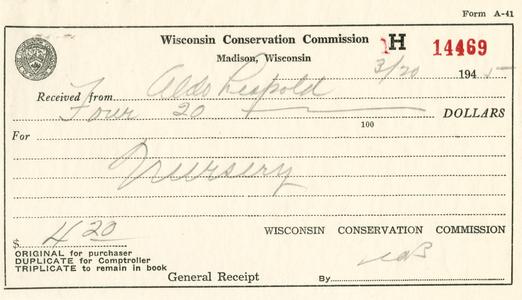 Form A-41
Wisconsin Conservation Commission H 14469
Madison, Wisconsin
3/20 1945
Received from Aldo Leopold
Four 20
100 DOLLARS
For
Nursery
$ 4 20 WISCONSIN CONSERVATION COMMISSION
ORIGINAL for purchaser
DUPLICATE for Comptroller
TRIPLICATE to remain in book
General Receipt By